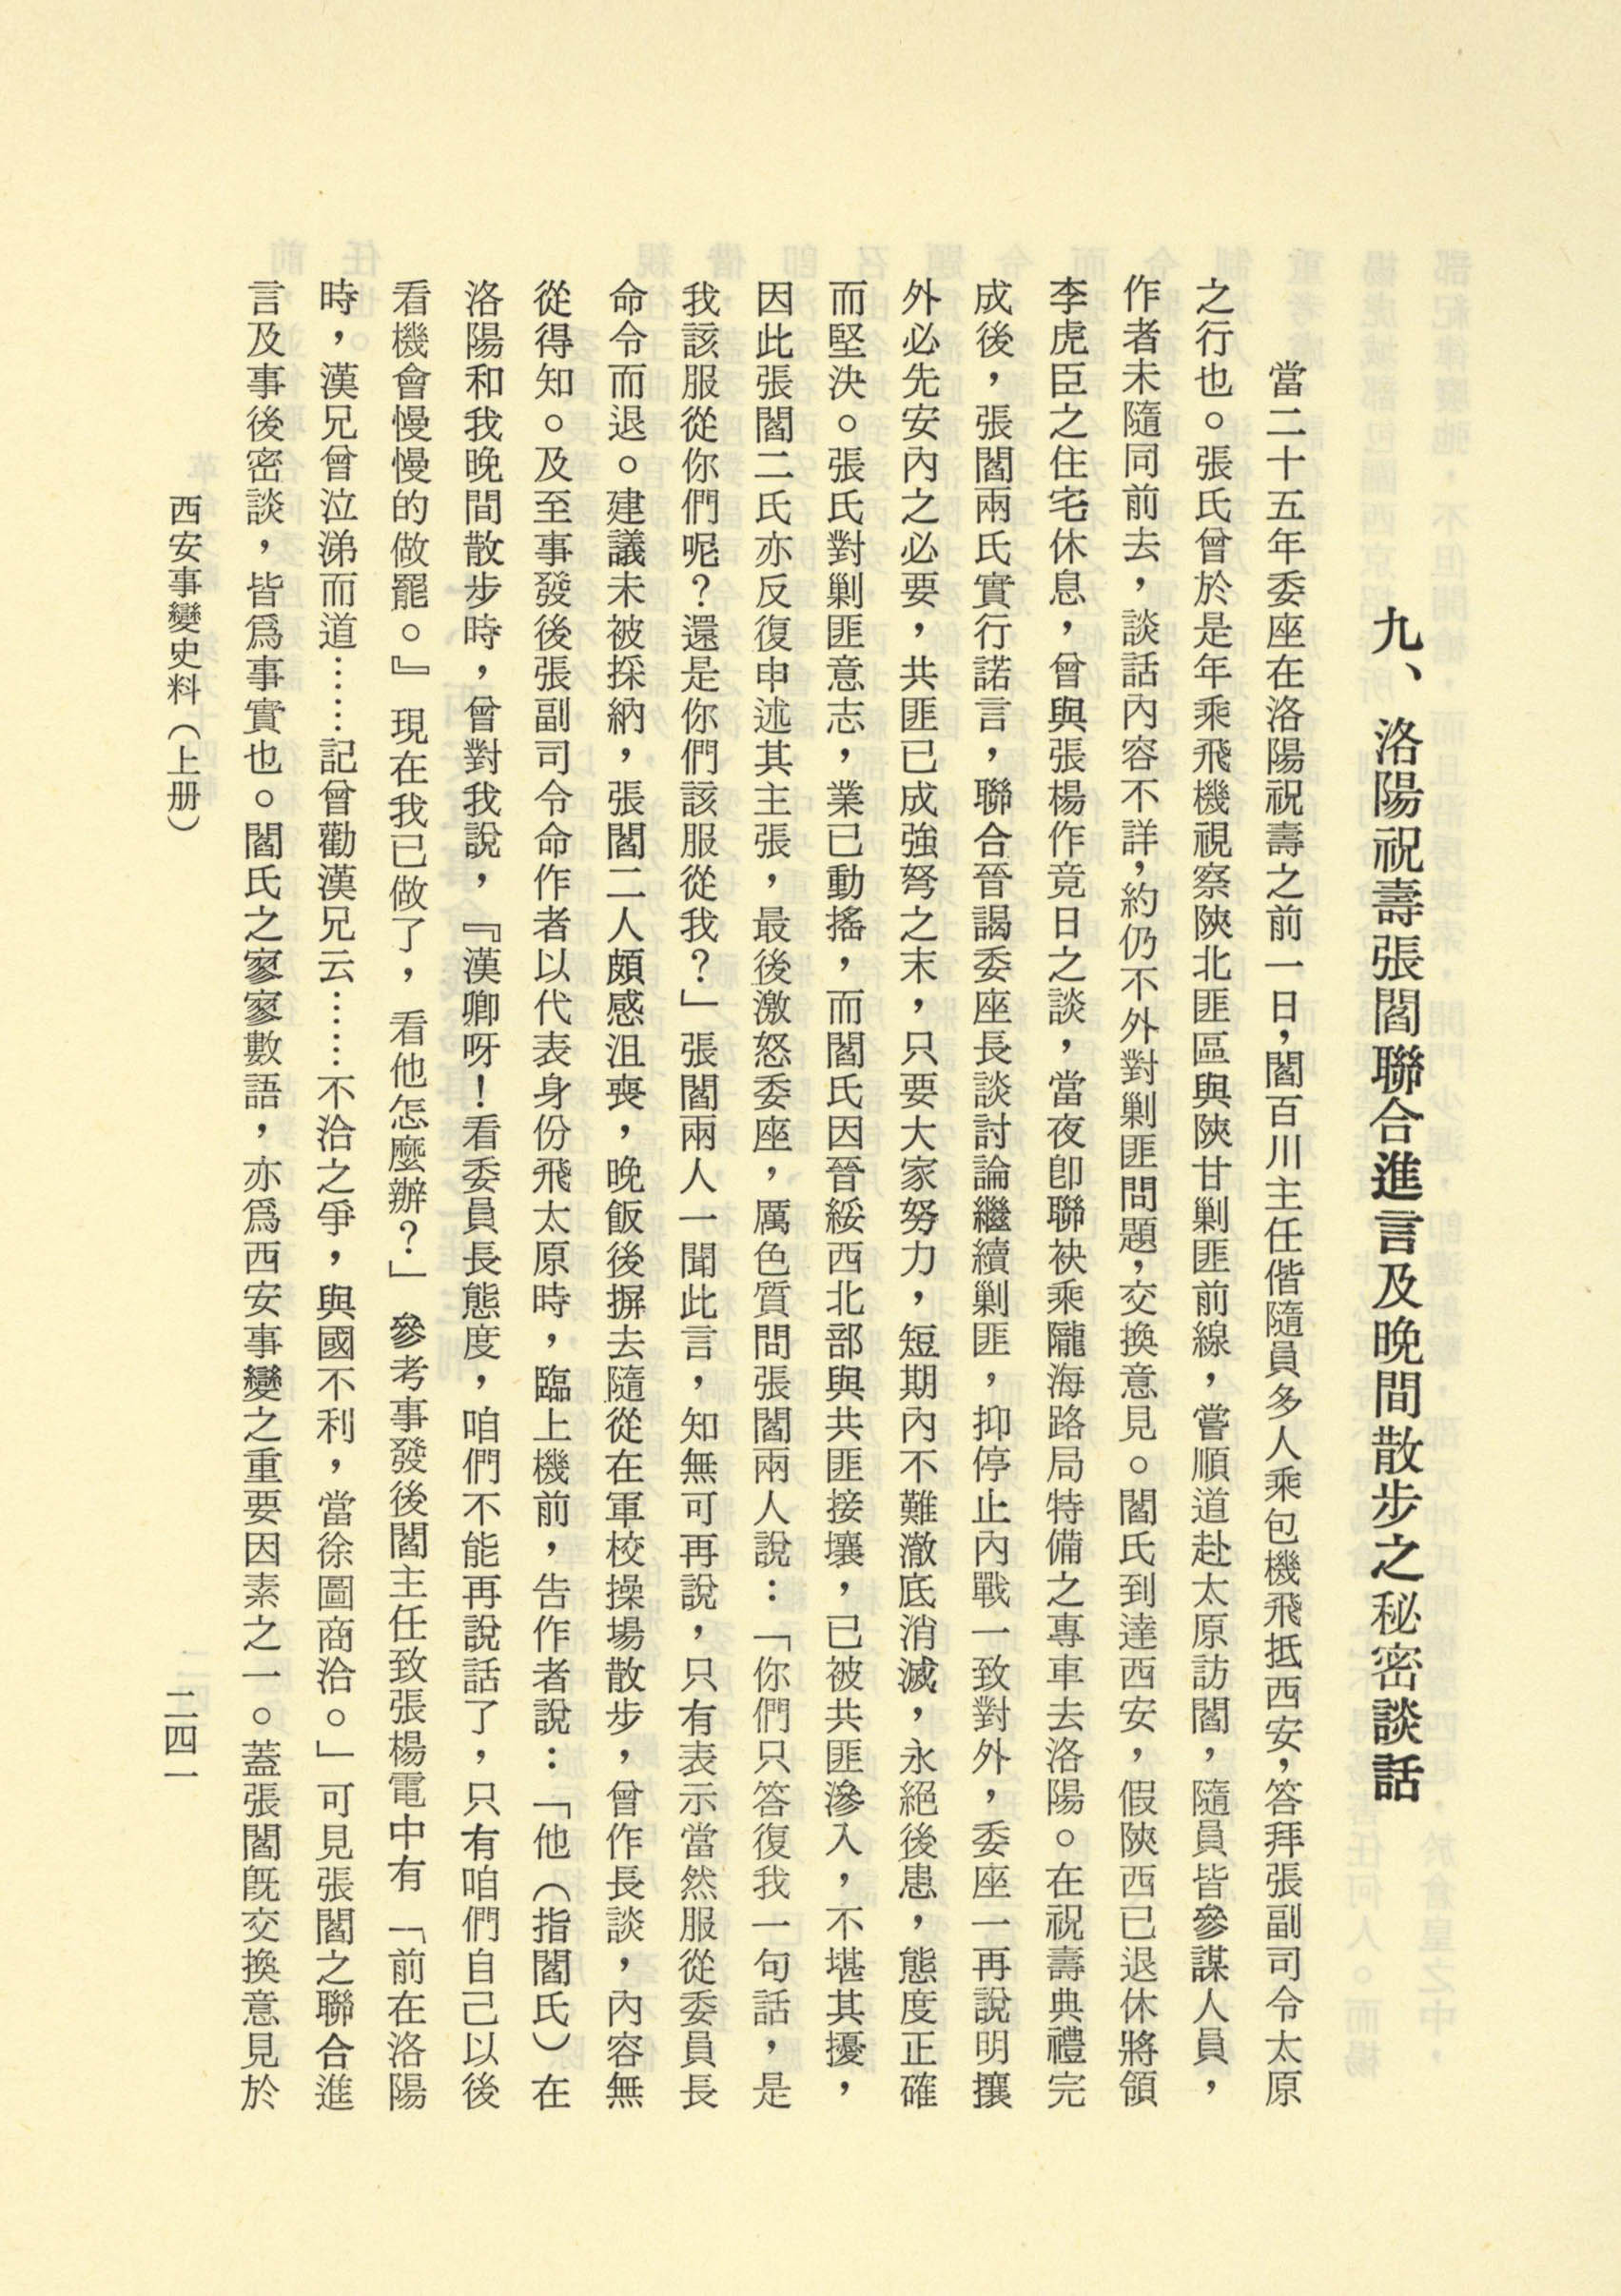 九、洛陽祝壽張閻聯合進言及晚間散步之秘密談話
當二十五年委座在洛陽祝壽之前一日，閻百川主任偕隨員多人乘包機飛抵西安，答拜張副司令太原
之行也。張氏曾於是年乘飛機視察陝北匪區與陝甘剿匪前線，嘗順道赴太原訪閻，隨員皆參謀人員，
作者未隨同前去，談話內容不詳，約仍不外對剿匪問題，交換意見。閻氏到達西安，假陝西已退休將領
李虎臣之住宅休息，曾與張楊作竟日之談，當夜卽聯袂乘隴海路局特備之專車去洛陽。在祝壽典禮完
成後，張閻兩氏實行諾言，聯合晉謁委座長談討論繼續剿匪，抑停止內戰一致對外，委座一再說明攘
外必先安內之必要，共匪已成強弩之末，只要大家努力，短期內不難澈底消滅，永絕後患，態度正確
而堅決。張氏對剿匪意志，業已動搖，而閻氏因晉綏西北部與共匪接壤，已被共匪滲入，不堪其擾，
因此張閻二氏亦反復申述其主張，最後激怒委座，厲色質問張閻兩人說：「你們只答復我一句話，是
我該服從你們呢？還是你們該服從我？」張閻兩人一聞此言，知無可再說，只有表示當然服從委員長
命令而退。建議未被採納，張閻二人頗感沮喪，晚飯後摒去隨從在軍校操場散步，曾作長談，內容無
從得知。及至事發後張副司令命作者以代表身份飛太原時，臨上機前，告作者說：「他（指閻氏）在
洛陽和我晚間散步時，曾對我說，『漢卿呀！看委員長態度，咱們不能再說話了，只有咱們自己以後
看機會慢慢的做罷。』現在我已做了，看他怎麼辦？」參考事發後閻主任致張楊電中有「前在洛陽
時，漢兄曾泣涕而道……記曾勸漢兄云……不洽之爭，與國不利，當徐圖商洽。」可見張閻之聯合進
言及事後密談，皆爲事實也。閻氏之寥寥數語，亦爲西安事變之重要因素之一。蓋張閻旣交換意見於
西安事變史料（上册）
二四一